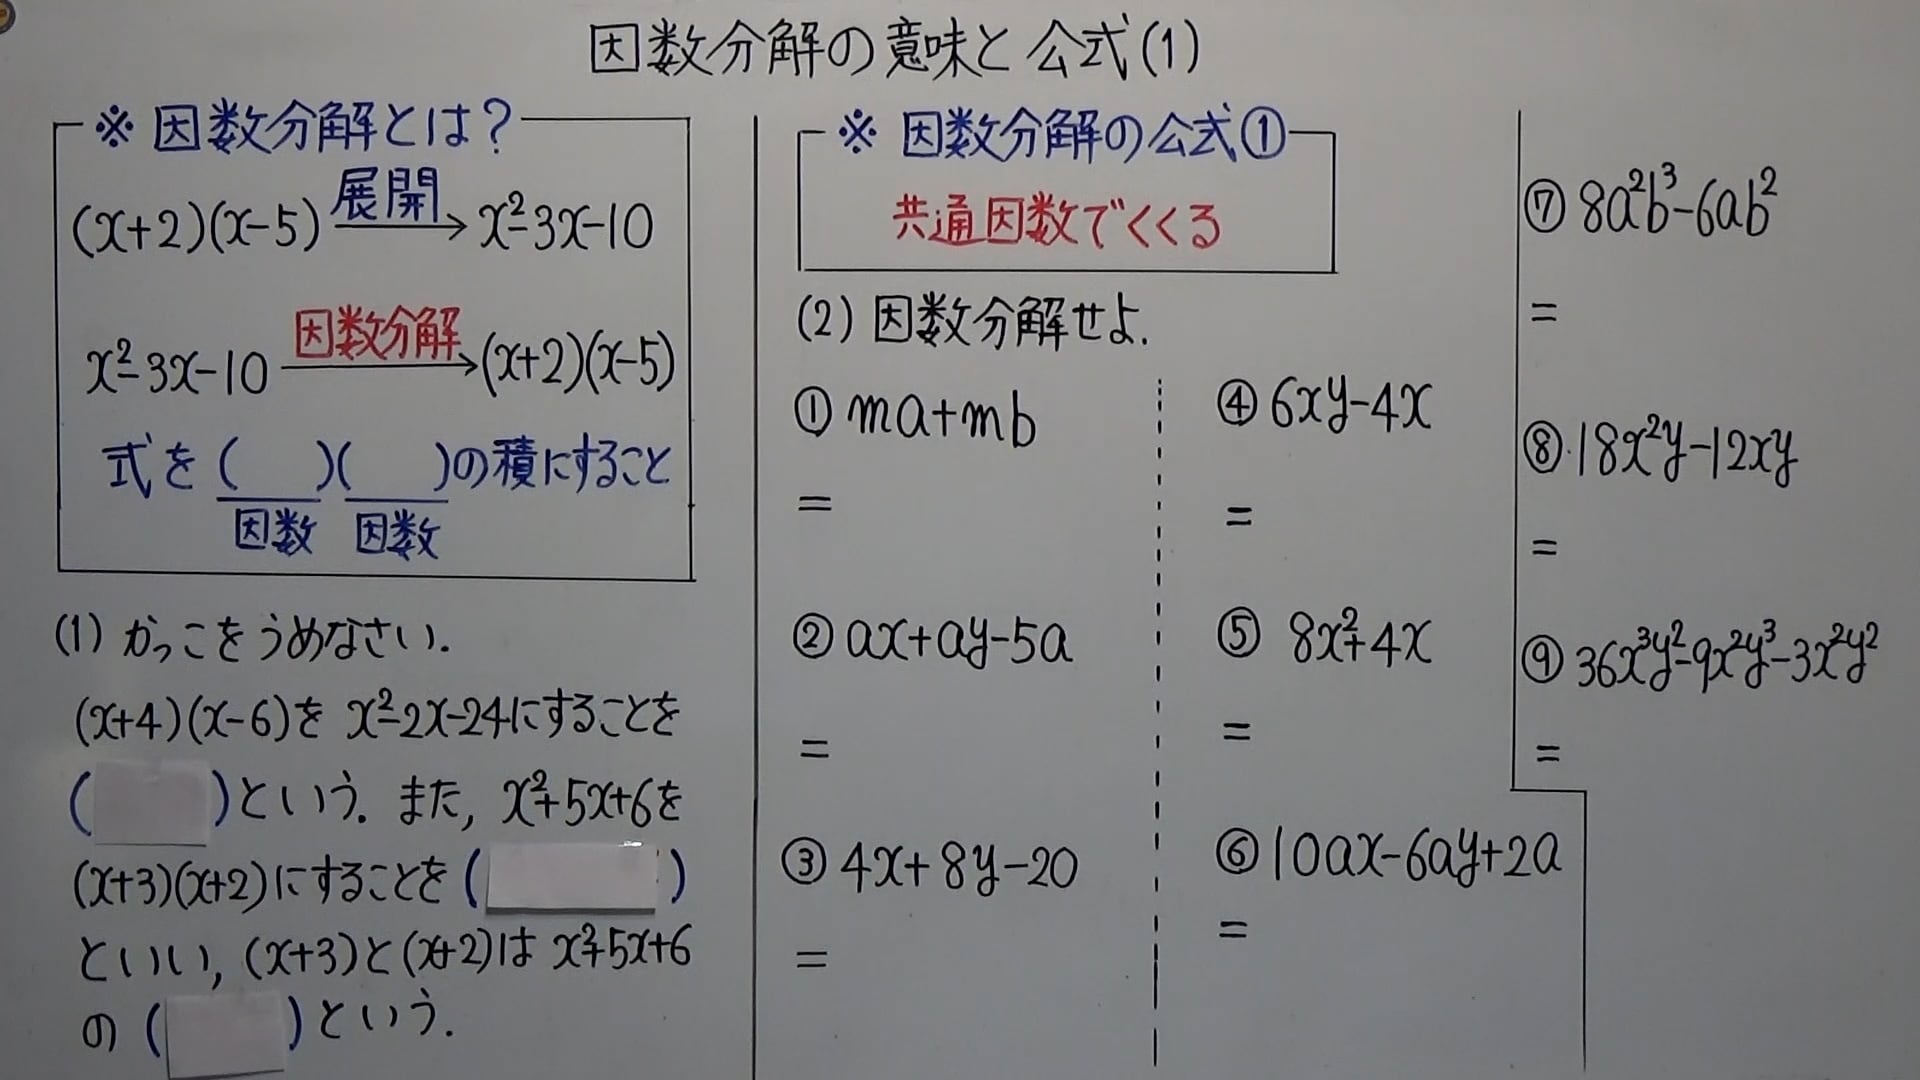 因数分解の意味と公式(1)
※ 因数分解とは?
(x+2)(x-5) 展開→ x²-3x-10
x²-3x-10 因数分解→ (x+2)(x-5)
式を(　)(　)の積にすること
因数 因数
(1) かっこをうめなさい.
(x+4)(x-6)を x²-2x-24にすることを
(　)という. また, x²+5x+6を
(x+3)(x+2)にすることを(　)
といい, (x+3)と(x+2)は x²+5x+6
の(　)という.
※ 因数分解の公式①
共通因数でくくる
(2) 因数分解せよ.
① ma+mb
=
② ax+ay-5a
=
③ 4x+8y-20
=
④ 6xy-4x
=
⑤ 8x²+4x
=
⑥ 10ax-6ay+2a
=
⑦ 8a²b³-6ab²
=
⑧ 18x²y-12xy
=
⑨ 36x³y²-9x²y³-3x²y²
=